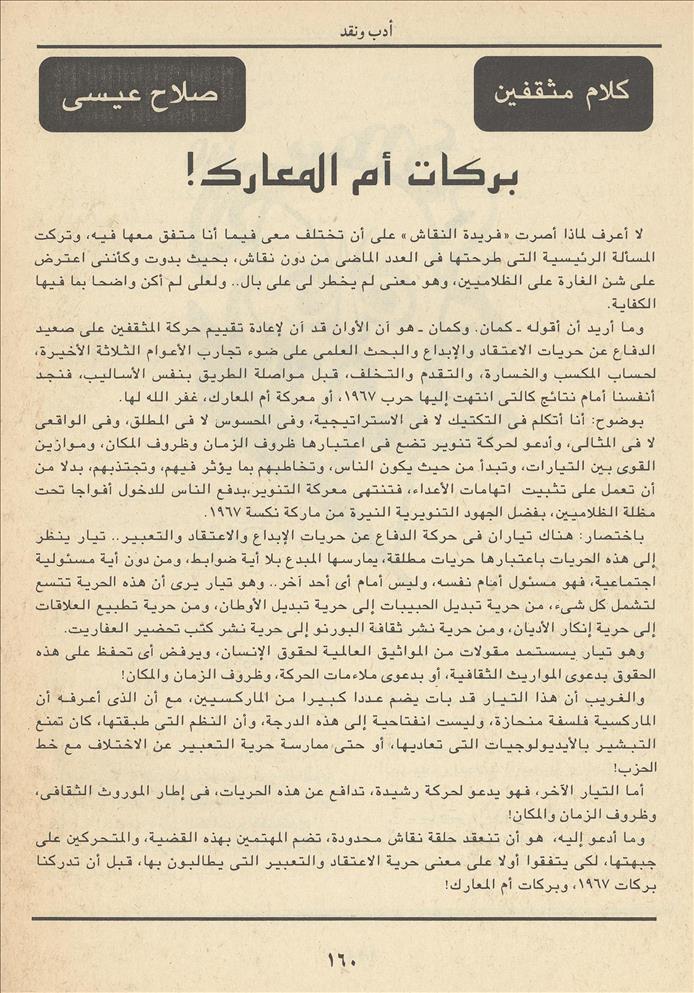 أدب ونقد
كلام مثقفين
صلاح عيسى
بركات أم المعارك!
لا أعرف لماذا أصرت «فريدة النقاش» على أن تختلف معى فيما أنا متفق معها فيه، وتركت
المسألة الرئيسية التى طرحتها فى العدد الماضى من دون نقاش، بحيث بدوت وكأننى اعترض
على شن الغارة على الظلاميين، وهو معنى لم يخطر لى على بال.. ولعلى لم أكن واضحا بما فيها
الكفاية.
وما أريد أن أقوله ـ كمان. وكمان ـ هو آن الأوان قد آن لإعادة تقييم حركة المثقفين على صعيد
الدفاع عن حريات الاعتقاد والإبداع والبحث العلمى على ضوء تجارب الأعوام الثلاثة الأخيرة،
لحساب المكسب والخسارة، والتقدم والتخلف، قبل مواصلة الطريق بنفس الأساليب، فنجد
أنفسنا أمام نتائج كالتى انتهت إليها حرب ١٩٦٧، أو معركة أم المعارك، غفر الله لها.
بوضوح: أنا أتكلم فى التكتيك لا فى الاستراتيجية، وفى المحسوس لا فى المطلق، وفى الواقعى
لا فى المثالى، وأدعو لحركة تنوير تضع فى اعتبارها ظروف الزمان وظروف المكان، وموازين
القوى بين التيارات، وتبدأ من حيث يكون الناس، وتخاطبهم بما يؤثر فيهم، وتجتذبهم، بدلا من
أن تعمل على تثبيت اتهامات الأعداء، فتنتهى معركة التنوير،بدفع الناس للدخول أفواجا تحت
مظلة الظلاميين، بفضل الجهود التنويرية النيرة من ماركة نكسة ١٩٦٧.
باختصار: هناك تياران فى حركة الدفاع عن حريات الإبداع والاعتقاد والتعبير.. تيار ينظر
إلى هذه الحريات باعتبارها حريات مطلقة، يمارسها المبدع بلا أية ضوابط، ومن دون أية مسئولية
اجتماعية، فهو مسئول أمام نفسه، وليس أمام أى أحد آخر.. وهو تيار يرى أن هذه الحرية تتسع
لتشمل كل شىء، من حرية تبديل الحبيبات إلى حرية تبديل الأوطان، ومن حرية تطبيع العلاقات
إلى حرية إنكار الأديان، ومن حرية نشر ثقافة البورنو إلى حرية نشر كتب تحضير العفاريت.
وهو تيار يستمد مقولات من المواثيق العالمية لحقوق الإنسان، ويرفض أى تحفظ على هذه
الحقوق بدعوى المواريث الثقافية، أو بدعوى ملاءمات الحركة، وظروف الزمان والمكان!
والغريب أن هذا التيار قد بات يضم عددا كبيرا من الماركسيين، مع أن الذى أعرفه أن
الماركسية فلسفة منحازة، وليست انفتاحية إلى هذه الدرجة، وأن النظم التى طبقتها، كان تمنع
التبشير بالأيديولوجيات التى تعاديها، أو حتى ممارسة حرية التعبير عن الاختلاف مع خط
الحزب!
أما التيار الآخر، فهو يدعو لحركة رشيدة، تدافع عن هذه الحريات، فى إطار الموروث الثقافى،
وظروف الزمان والمكان!
وما أدعو إليه، هو أن تنعقد حلقة نقاش محدودة، تضم المهتمين بهذه القضية، والمتحركين على
جبهتها، لكى يتفقوا أولا على معنى حرية الاعتقاد والتعبير التى يطالبون بها، قبل أن تدركنا
بركات ١٩٦٧، وبركات أم المعارك!
١٦٠